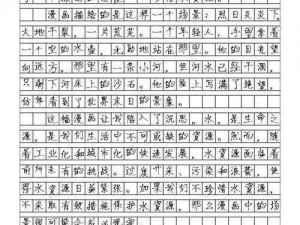 漫画描绘的是这样一个场景：烈日炎炎下，
大地干裂，一片荒芜。一个年轻人，手里拿着
一个空的水壶，无助地站在那里。他的目光望
向远方，那里有一条小河，但河水已经干涸，
只剩下河床上的沙石。他的脸上写满了绝望，
仿佛看到了世界末日的景象。
这幅漫画让我陷入了沉思。水，是生命之
源，是我们生活中不可或缺的资源。然而，随
着工业化和城市化的快速发展，水资源面临着
前所未有的挑战。过度开采、污染和浪费，使
得水资源日益紧张。如果我们不珍惜水资源，
不采取有效措施保护水资源，那么漫画中的场
景很可能会成为现实。